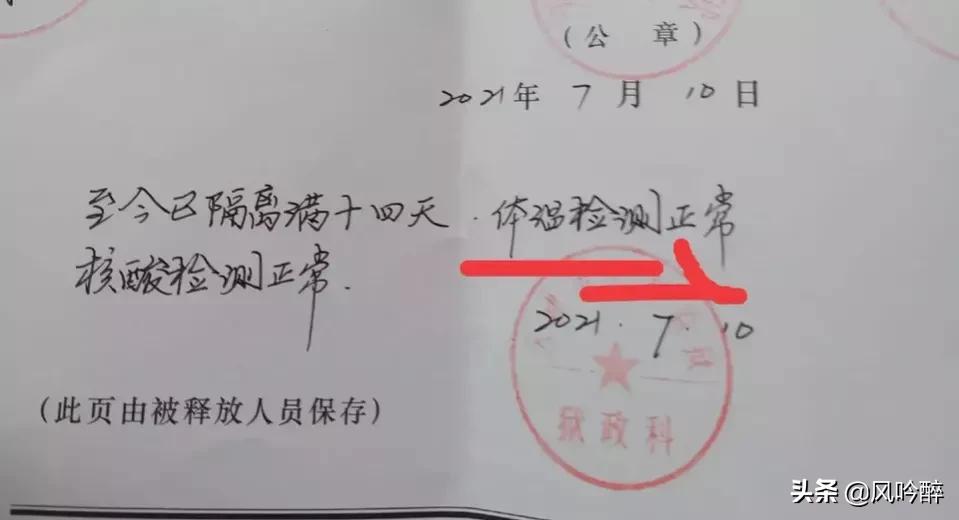 (公 章)
2021年 7 月 10 日
至今已隔离满十四天.体温检测正常
核酸检测正常.
2021.7.10
狱政科
(此页由被释放人员保存)
头条 @风吟醉